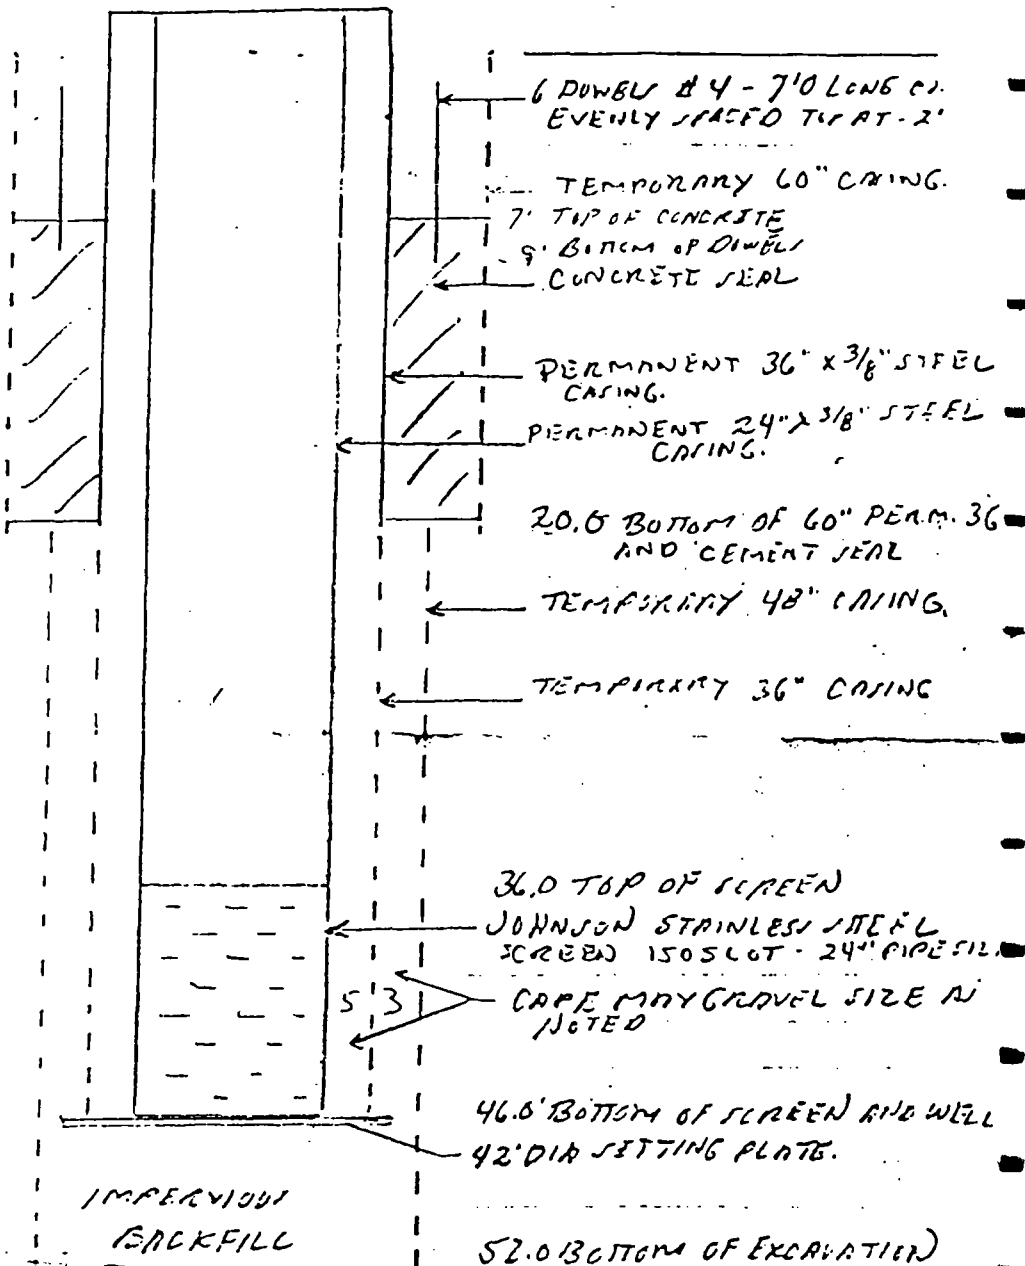 6 DOWELS #4 - 7'0 LONG
EVENLY SPACED TOP AT - 2'
TEMPORARY 60" CASING.
7' TOP OF CONCRETE
9' BOTTOM OF DOWELS
CONCRETE SEAL
PERMANENT 36" x 3/8" STEEL
CASING.
PERMANENT 24" x 3/8" STEEL
CASING.
20.0 BOTTOM OF 60" PERM. 36
AND CEMENT SEAL
TEMPORARY 48" CASING.
TEMPORARY 36" CASING
36.0 TOP OF SCREEN
JOHNSON STAINLESS STEEL
SCREEN 150 SLOT - 24" PIPE
5 3
CAPE MAY GRAVEL SIZE AS
NOTED
46.0' BOTTOM OF SCREEN AND WELL
42" DIA SETTING PLATE.
IMPERVIOUS
BACKFILL
52.0 BOTTOM OF EXCAVATION